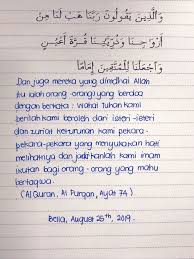 وَالَّذِينَ يَقُولُونَ رَبَّنَا هَبْ لَنَا مِنْ
أَزْوَاجِنَا وَذُرِّيَّتِنَا قُرَّةَ أَعْيُنٍ
وَاجْعَلْنَا لِلْمُتَّقِينَ إِمَامًا
Dan juga mereka yang diredhai Allah
itu ialah orang-orang yang berdoa
dengan berkata : Wahai Tuhan kami
berilah kami beroleh dari isteri-isteri
dan zuriat keturunan kami perkara-
perkara-perkara yang menyukakan hati
melihatnya dan jadikanlah kami imam
ikutan bagi orang-orang yang mahu
bertaqwa.
(Al Quran, Al Furqan, Ayat 74)
Bella, August 25th, 2019.